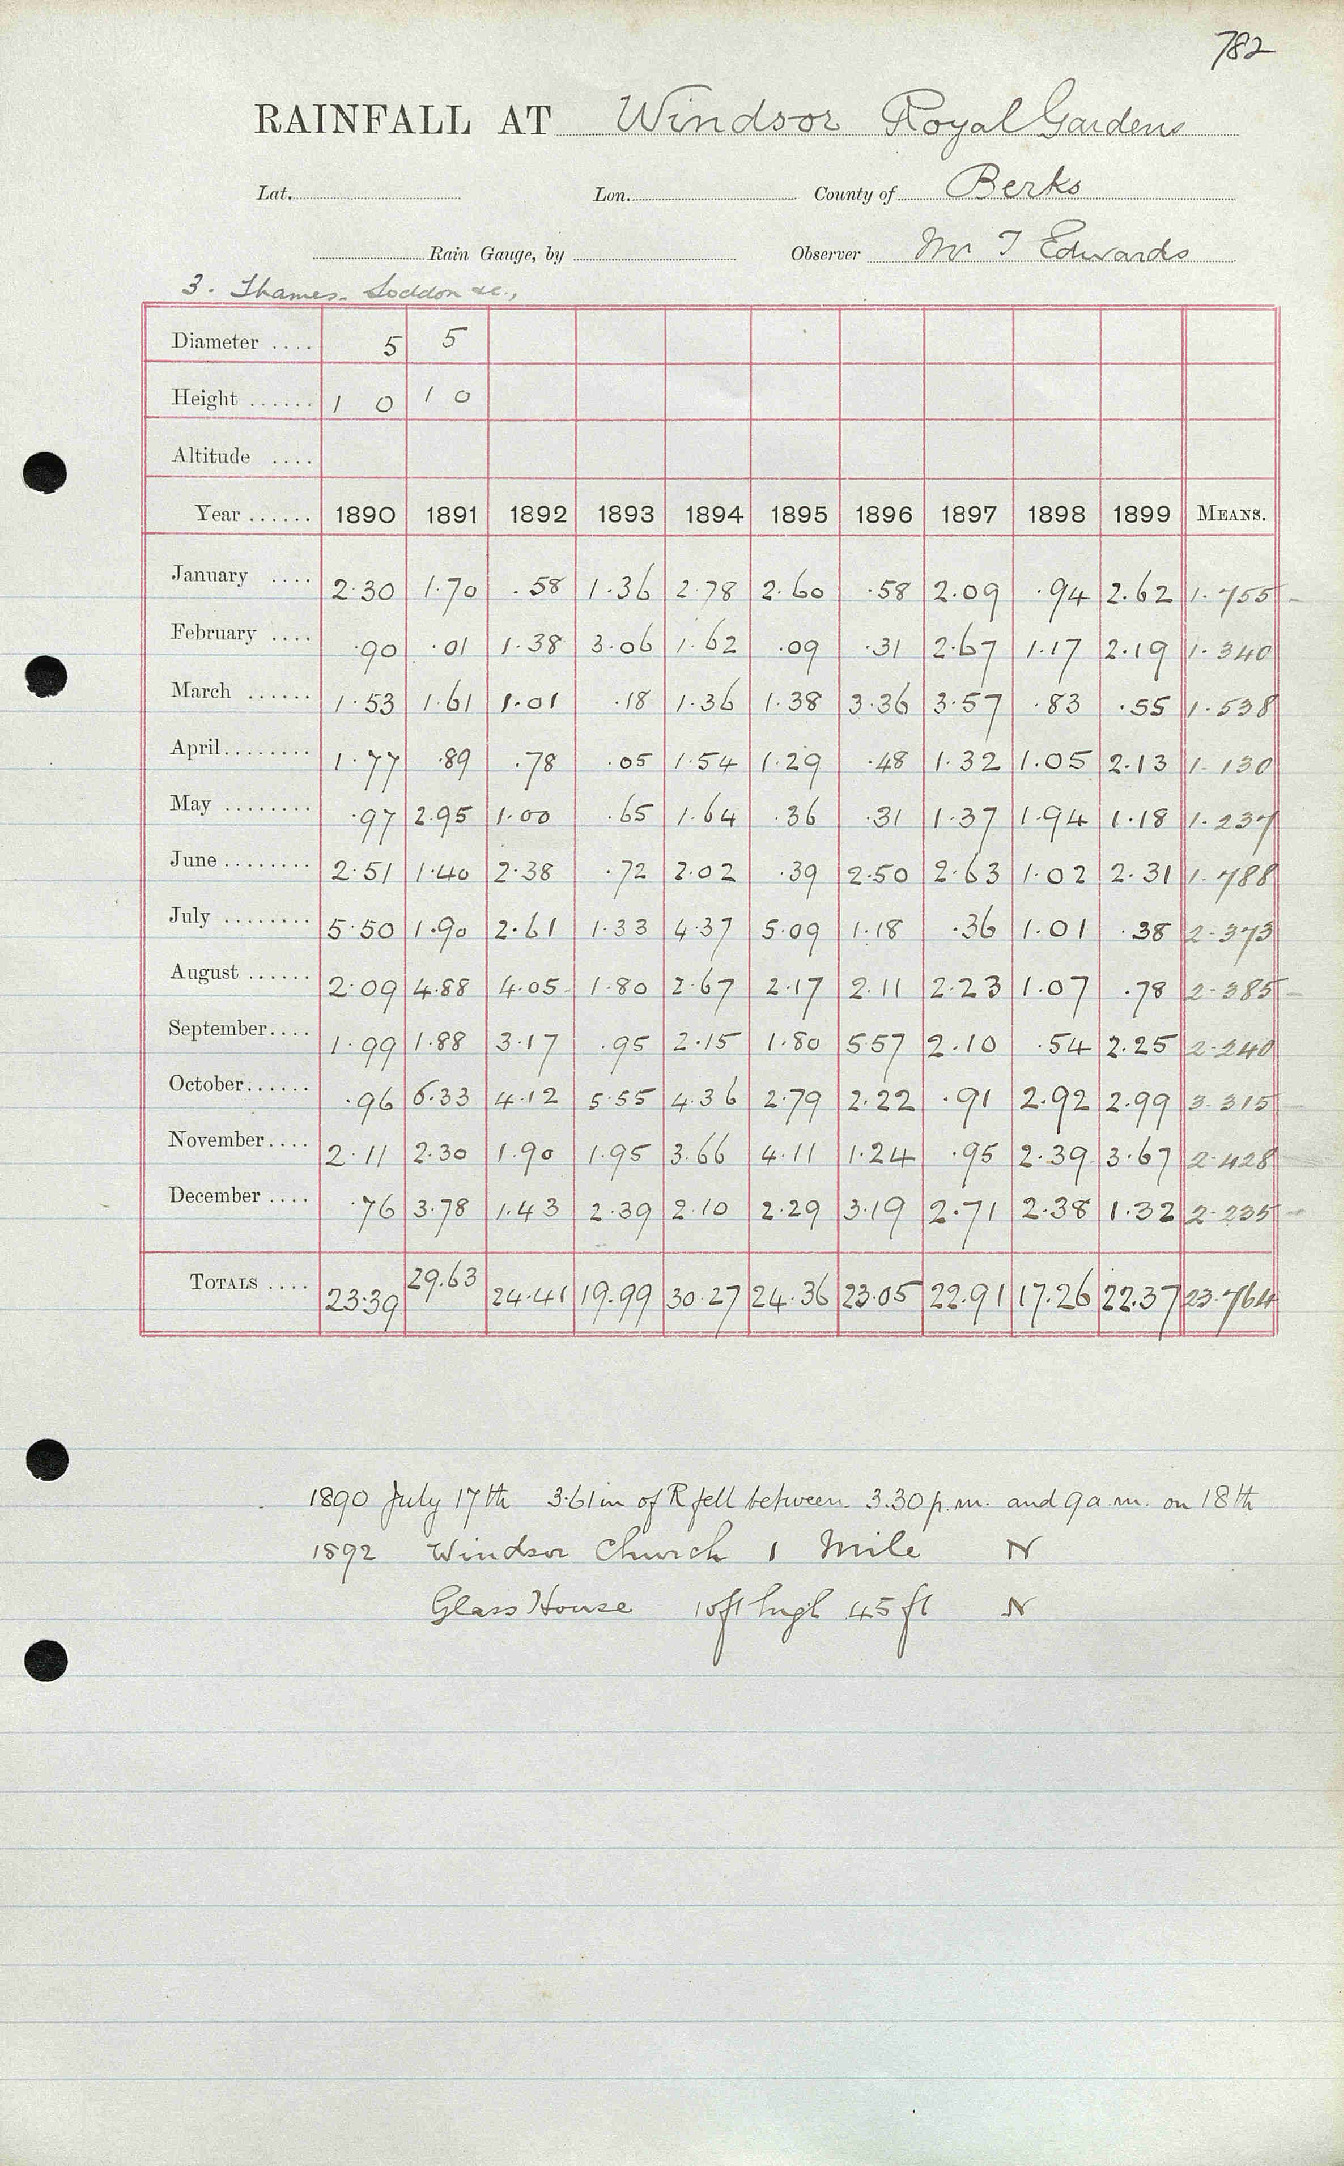 782
RAINFALL AT Windsor Royal Gardens
Lat. Lon. County of Berks
Rain Gauge, by Observer Mr T Edwards
3. Thames. Loddon &c.,
Diameter .... 5 5
Height ...... 1 0 1 0
Altitude ....
Year ...... 1890 1891 1892 1893 1894 1895 1896 1897 1898 1899 MEANS.
January .... 2.30 1.70 .58 1.36 2.78 2.60 .58 2.09 .94 2.62 1.755
February .... .90 .01 1.38 3.06 1.62 .09 .31 2.67 1.17 2.19 1.340
March ...... 1.53 1.61 1.01 .18 1.36 1.38 3.36 3.57 .83 .55 1.538
April ........ 1.77 .89 .78 .05 1.54 1.29 .48 1.32 1.05 2.13 1.130
May ........ .97 2.95 1.00 .65 1.64 .36 .31 1.37 1.94 1.18 1.237
June ........ 2.51 1.40 2.38 .72 2.02 .39 2.50 2.63 1.02 2.31 1.788
July ........ 5.50 1.90 2.61 1.33 4.37 5.09 1.18 .36 1.01 .38 2.373
August ...... 2.09 4.88 4.05 1.80 2.67 2.17 2.11 2.23 1.07 .78 2.385
September .... 1.99 1.88 3.17 .95 2.15 1.80 5.57 2.10 .54 2.25 2.240
October ...... .96 6.33 4.12 5.55 4.36 2.79 2.22 .91 2.92 2.99 3.315
November .... 2.11 2.30 1.90 1.95 3.66 4.11 1.24 .95 2.39 3.67 2.428
December .... .76 3.78 1.43 2.39 2.10 2.29 3.19 2.71 2.38 1.32 2.235
TOTALS .... 23.39 29.63 24.41 19.99 30.27 24.36 23.05 22.91 17.26 22.37 23.764
1890 July 17th 3.61 in of R fell between 3.30 p.m. and 9 a.m. on 18th
1892 Windsor Church 1 Mile N
Glass House 10ft high 45 ft N